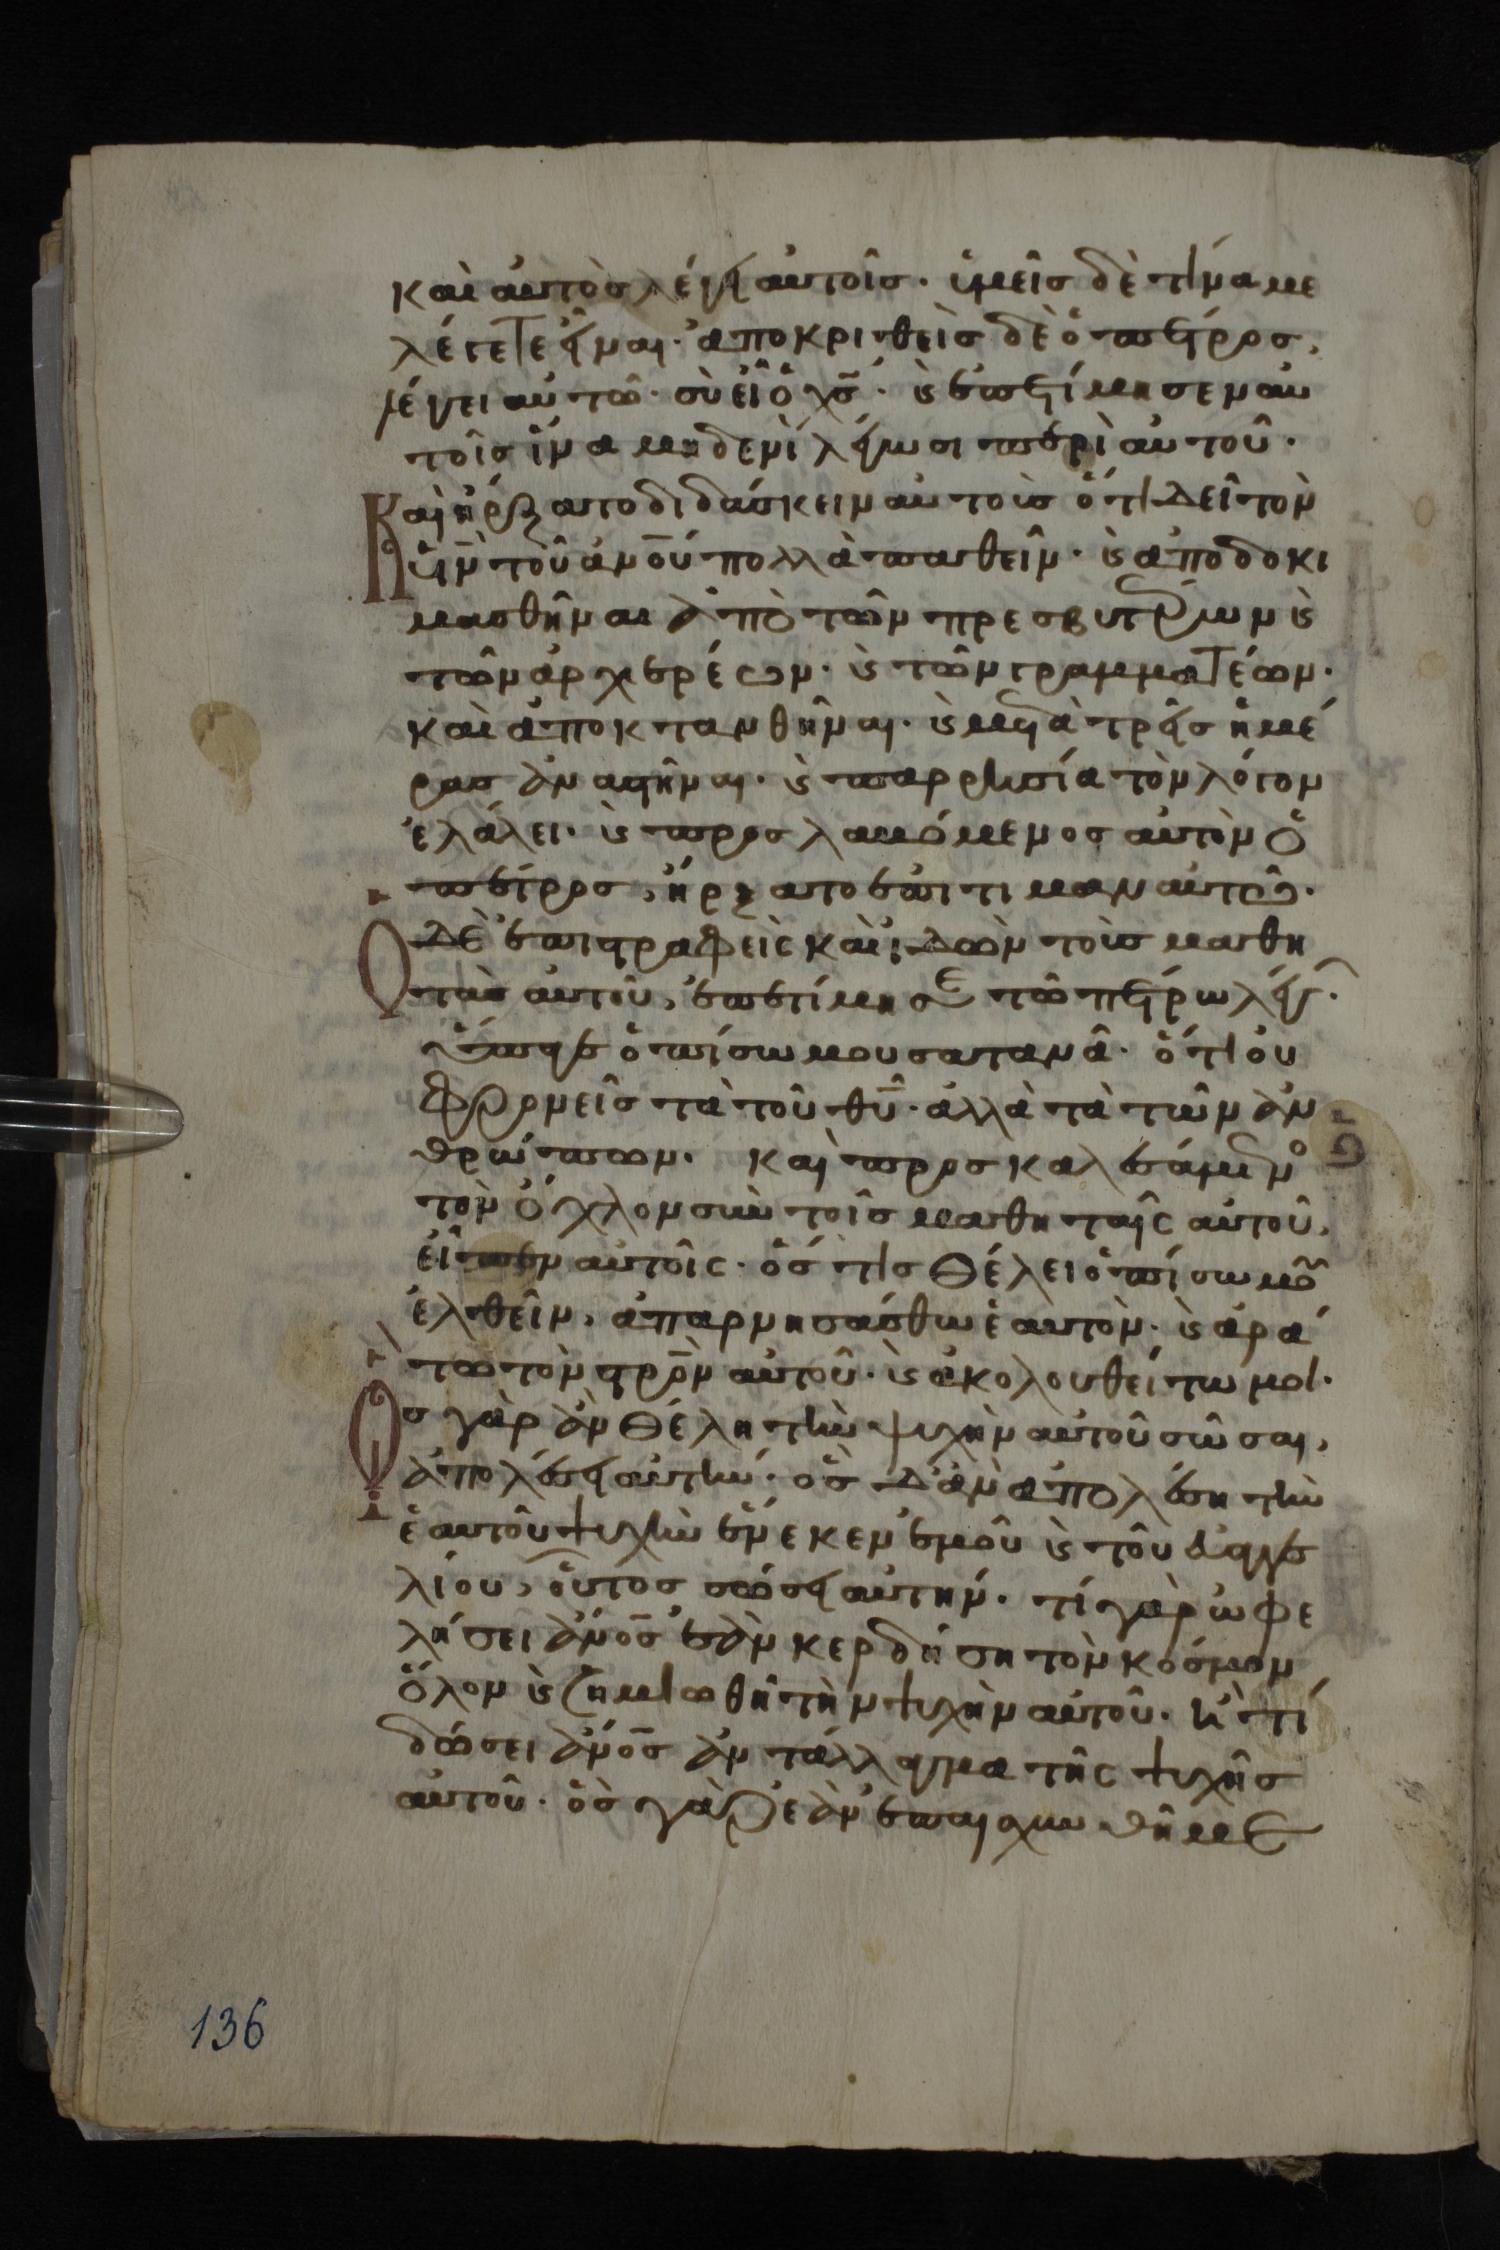 καὶ αὐτὸς λέγει αὐτοῖς· ὑμεῖς δὲ τίνα με
λέγετε εἶναι· ἀποκριθεὶς δὲ ὁ πέτρος,
λέγει αὐτῶ· σὺ εἶ ὁ χς̄· κ̀ ἐπετίμησεν αὐ
τοῖς ἵνα μηδενὶ λέγωσι περὶ αὐτοῦ·
Καὶ ἤρξατο διδάσκειν αὐτοὺς ὅτι δεῖ τὸν
ὑν̄ τοῦ ἀνοῡ πολλὰ παθεῖν· κ̀ ἀποδοκι
μασθῆναι ἀπὸ τῶν πρεσβυτέρων κ̀
τῶν ἀρχιερέων· κ̀ τῶν γραμματέων·
καὶ ἀποκτανθῆναι· κ̀ μετὰ τρεῖς ἡμέ
ρας ἀναστῆναι· κ̀ παρρησία τὸν λόγον
ἐλάλει· κ̀ προσλαβόμενος αὐτὸν ὁ
πέτρος, ἤρξατο ἐπιτιμαν αὐτῶ·
Ὁ δὲ ἐπιστραφεὶς καὶ ἰδὼν τοὺς μαθη
τὰς αὐτοῦ, ἐπετίμησε τῶ πέτρω λέγ·
ὕπαγε ὀπίσω μου σατανᾶ· ὅτι οὐ
φρονεῖς τὰ τοῦ θῡ· ἀλλὰ τὰ τῶν ἀν
θρώπων· καὶ προσκαλεσάμενο
τὸν ὄχλον σὺν τοῖς μαθηταῖς αὐτοῦ,
εἶπεν αὐτοῖς· ὅστις θέλει ὀπίσω μου
ἐλθεῖν, ἀπαρνησάσθω ἑαυτὸν· κ̀ ἀρά
τω τὸν στρο̄ν αὐτοῦ· κ̀ ἀκολουθείτω μοι·
Ὃς γὰρ ἂν θέλη τὴν ψυχὴν αὐτοῦ σῶσαι,
ἀπολέσει αὐτήν· ὃς δ' ἂν ἀπολέση τὴν
ἑαυτοῦ ψυχὴν ἕνεκεν ἐμοῦ κ̀ τοῦ εὐαγγε
λίου, οὗτος σώσει αὐτήν· τί γὰρ ὠφε
λήσει ἄνος̄ ἐὰν κερδήση τὸν κόσμον
ὅλον κ̀ ζημιωθῆ τὴν ψυχὴν αὐτοῦ· ἢ τί
δώσει ἄνος̄ ἀντάλλαγμα τῆς ψυχῆς
αὐτοῦ· ὃς γὰρ ἐὰν ἐπαισχυνθῆ με
136